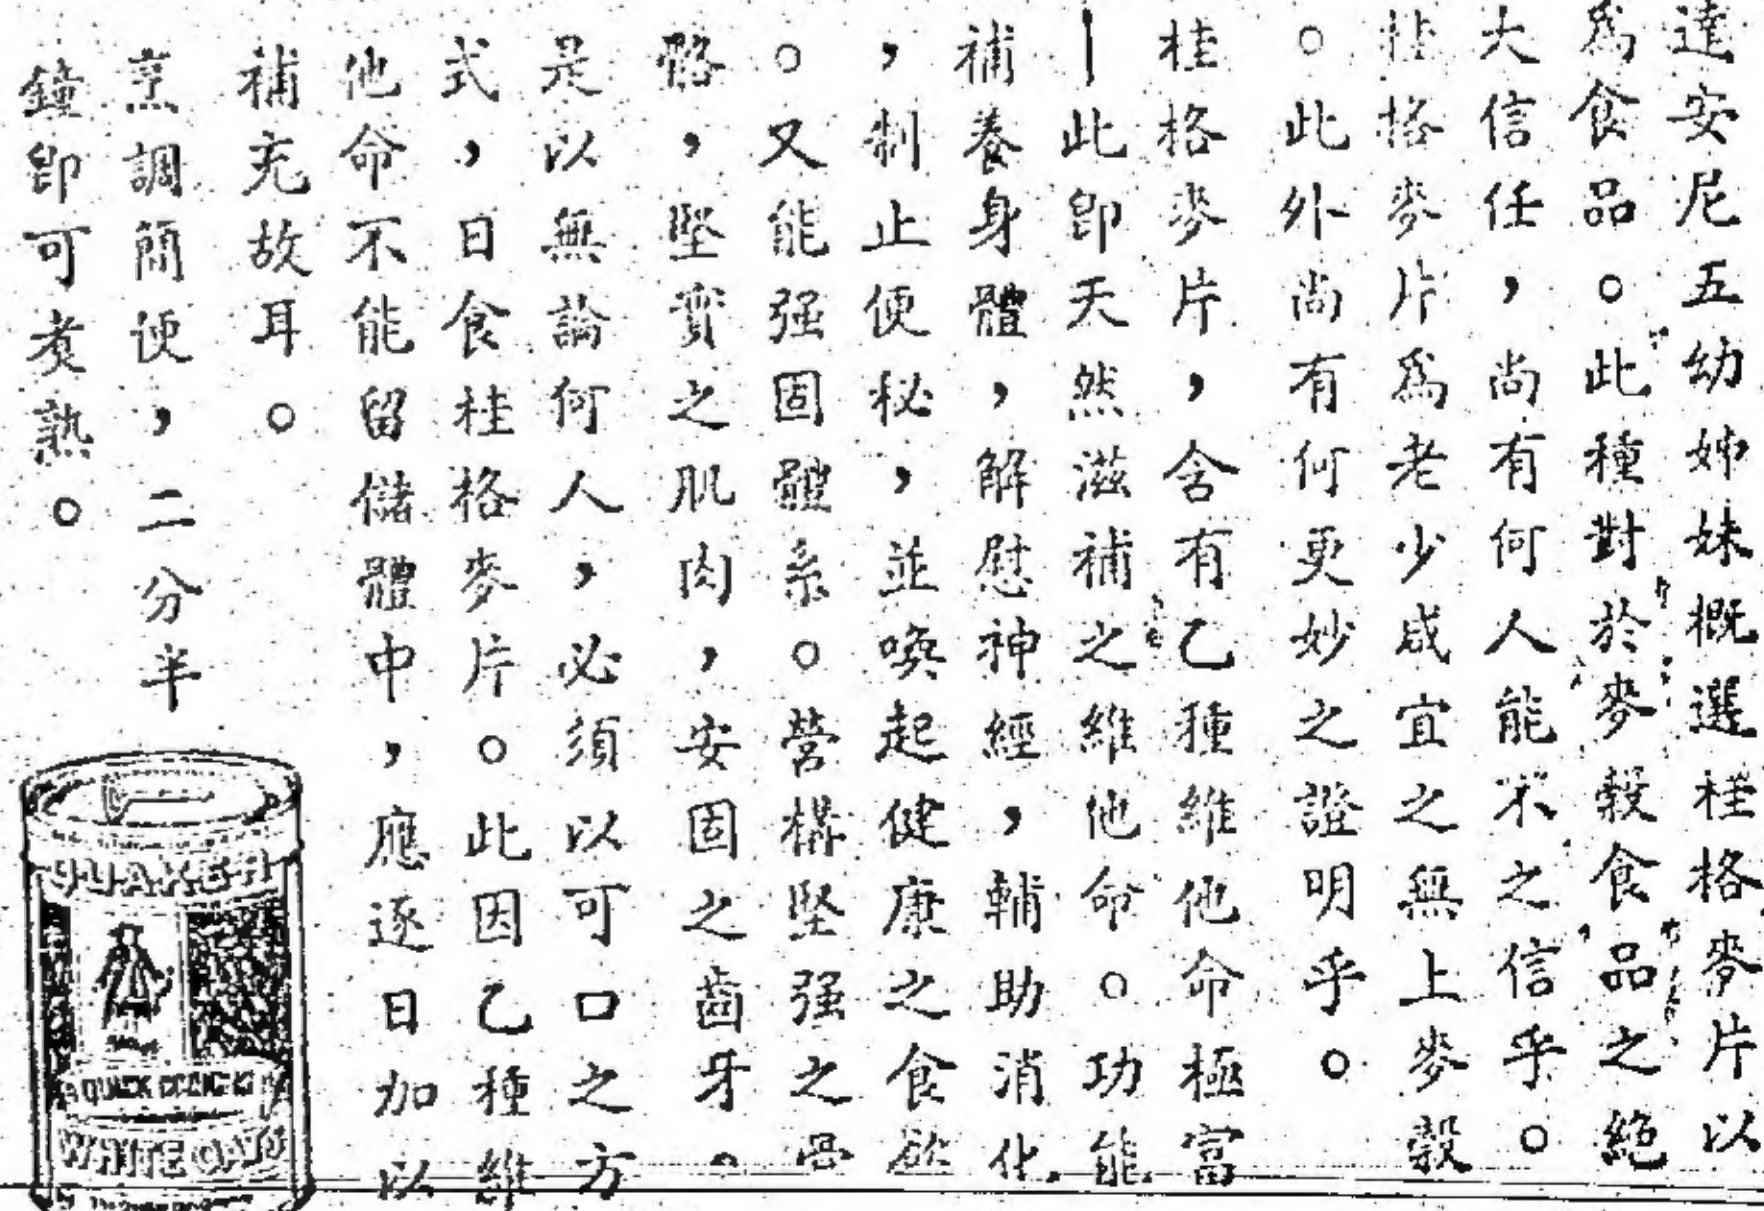 達安尼五幼姊妹概選桂格麥片以
爲食品。此種對於麥穀食品之絕
大信任，尚有何人能不之信乎。
桂格麥片爲老少咸宜之無上麥穀
。此外尚有何更妙之證明乎。
桂格麥片，含有乙種維他命極富
—此卽天然滋補之維他命。功能
補養身體，解慰神經，輔助消化
，制止便秘，並喚起健康之食慾
。又能强固體系。營構坚强之骨
骼，坚實之肌肉，安固之齒牙。
是以無論何人，必須以可口之方
式，日食桂格麥片。此因乙種維
他命不能留儲體中，應逐日加以
補充故耳。
烹調簡便，二分半
鐘卽可煑熟。
QUAKER
QUICK COOKING
WHITE OATS